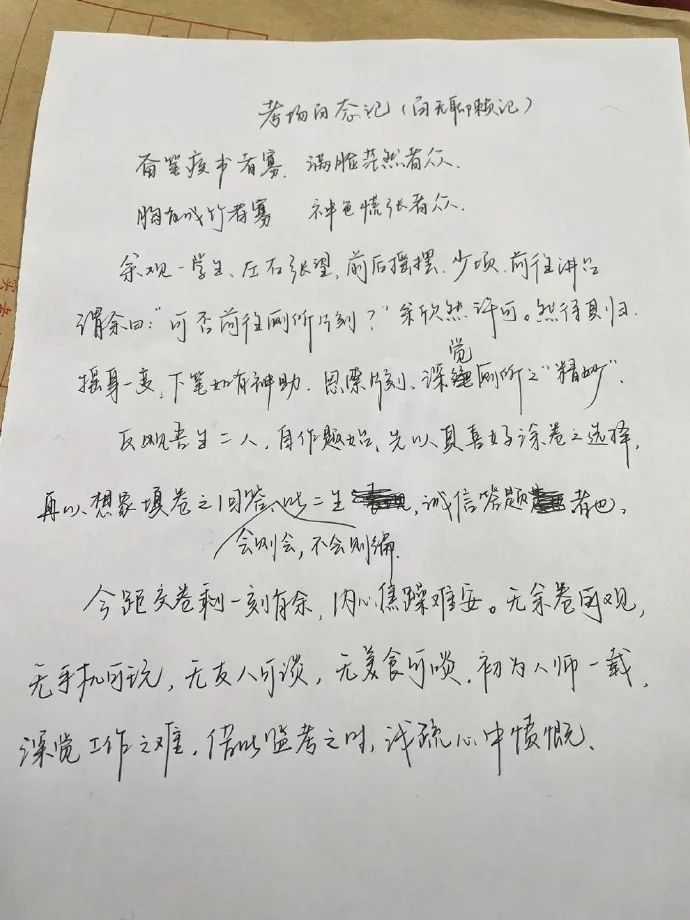 考场百态记（百无聊赖记）
奋笔疾书者寡，满脸茫然者众.
胸有成竹者寡 神色慌张者众.
余观一学生、左右张望，前后摇摆.少顷.前往讲台
谓余曰："可否前往厕所片刻？"余欣然许可。然待其归.
摇身一变，下笔如有神助.思索片刻、深觉厕所之"精妙".
反观吾生二人，自作题始，先以其喜好涂卷之选择，
再以想象填卷之回答、此二生，诚信答题者也。
会则会，不会则编.
今距交卷剩一刻有余，内心焦躁难安。无余卷可观，
无手机可玩，无友人可谈，无美食可啖.初为人师一载，
深觉工作之难，借此监考之时，浅疏心中愤慨.